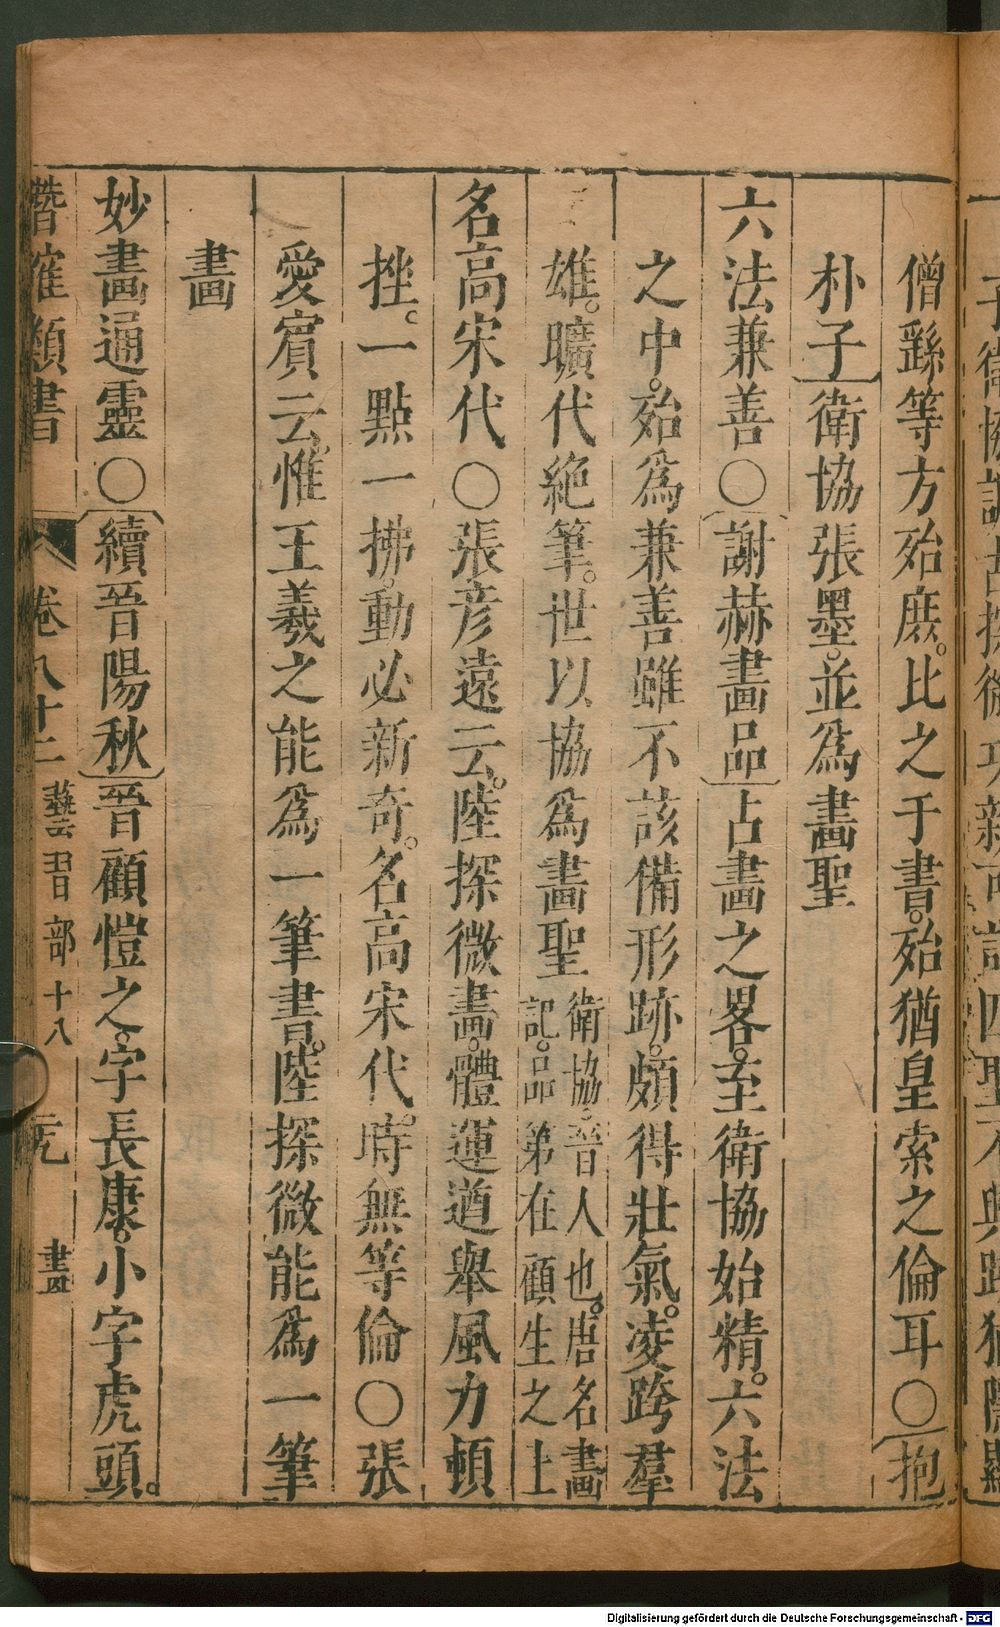 僧繇等方殆庶。比之于書。殆猶皇索之倫耳○抱
朴子衛協張墨。並爲畫聖
六法兼善○謝赫畫品占畫之畧。至衛協始精。六法
之中。殆爲兼善雖不該備形跡。頗得壯氣。凌跨羣
雄。曠代絶筆。世以協爲畫聖衛協。晉人也。唐名畫記。品第在顧生之上
名高宋代○張彦遠云。陸探微畫。體運遒舉風力頓
挫。一點一拂。動必新奇。名高宋代。時無等倫○張
愛賓云。惟王羲之能爲一筆書。陸探微能爲一筆
畫
妙畫通靈○續晉陽秋晉顧愷之。字長康。小字虎頭。
潛確類書 卷八十二 藝習部十八 畫
Digitalisierung gefördert durch die Deutsche Forschungsgemeinschaft - DFG